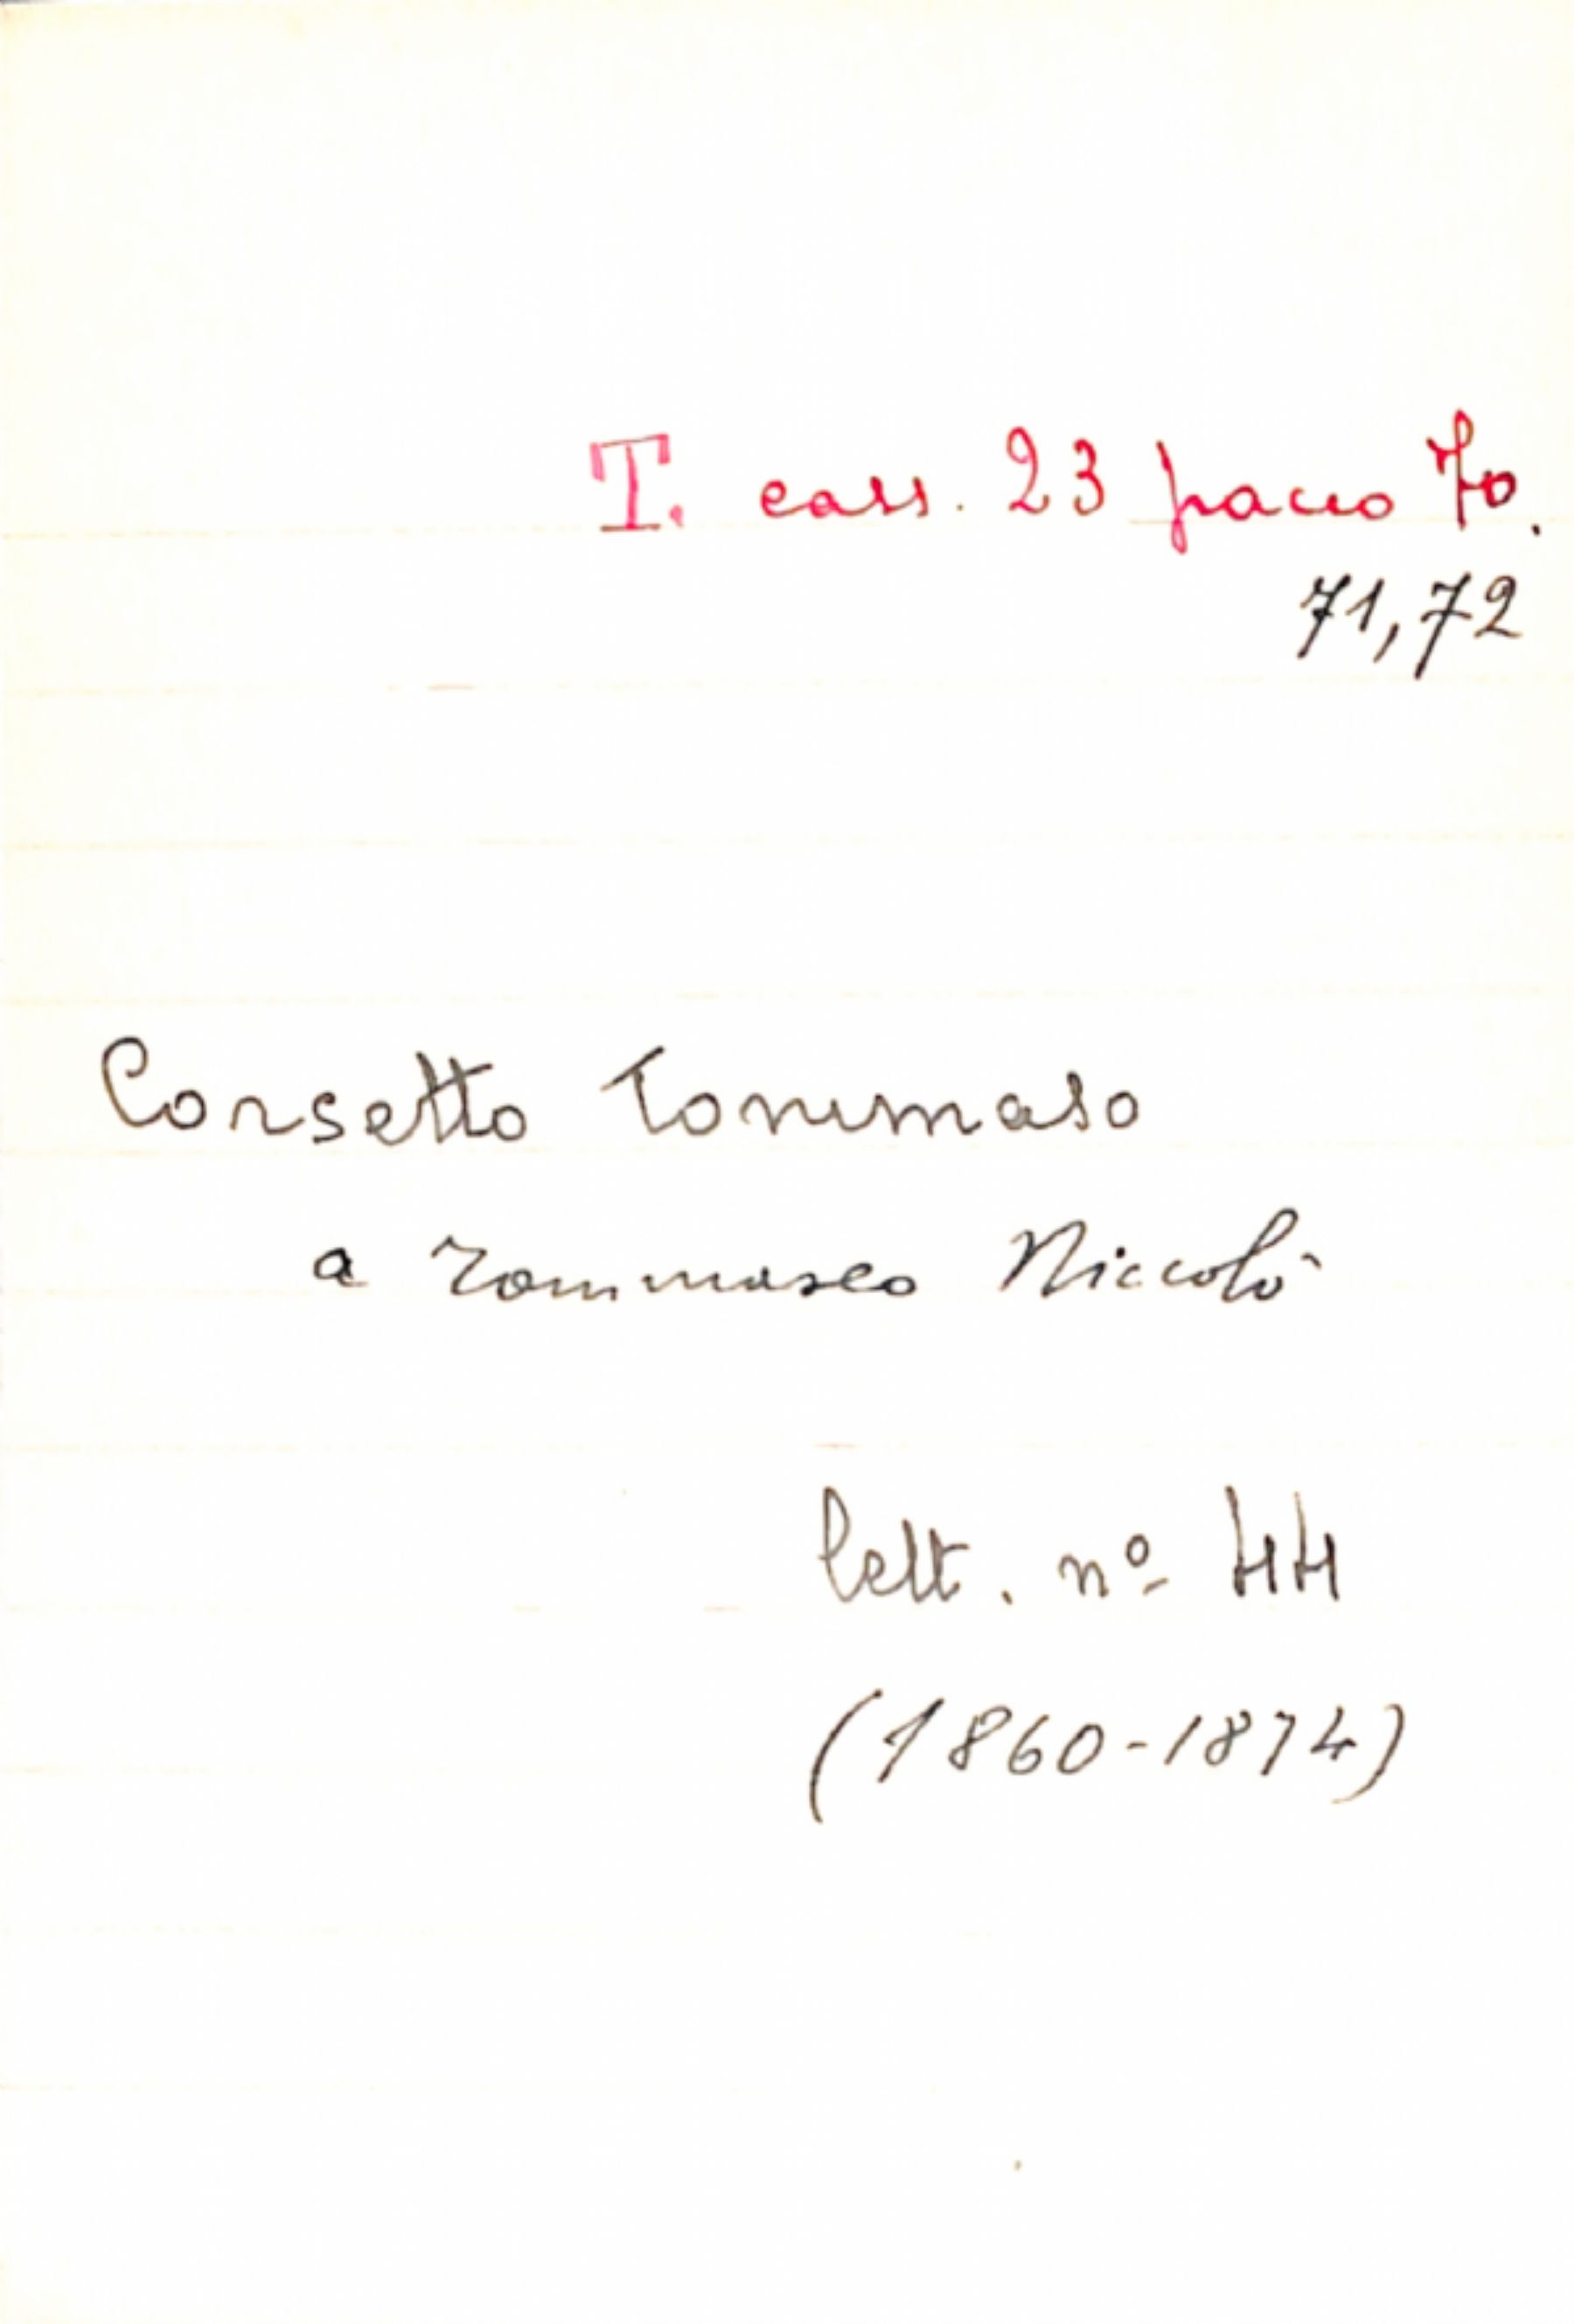 T. cass. 23 pacco 70.
71,72
Corsetto Tommaso
a Tommaseo Niccolò
lett. nº 44
(1860-1874)